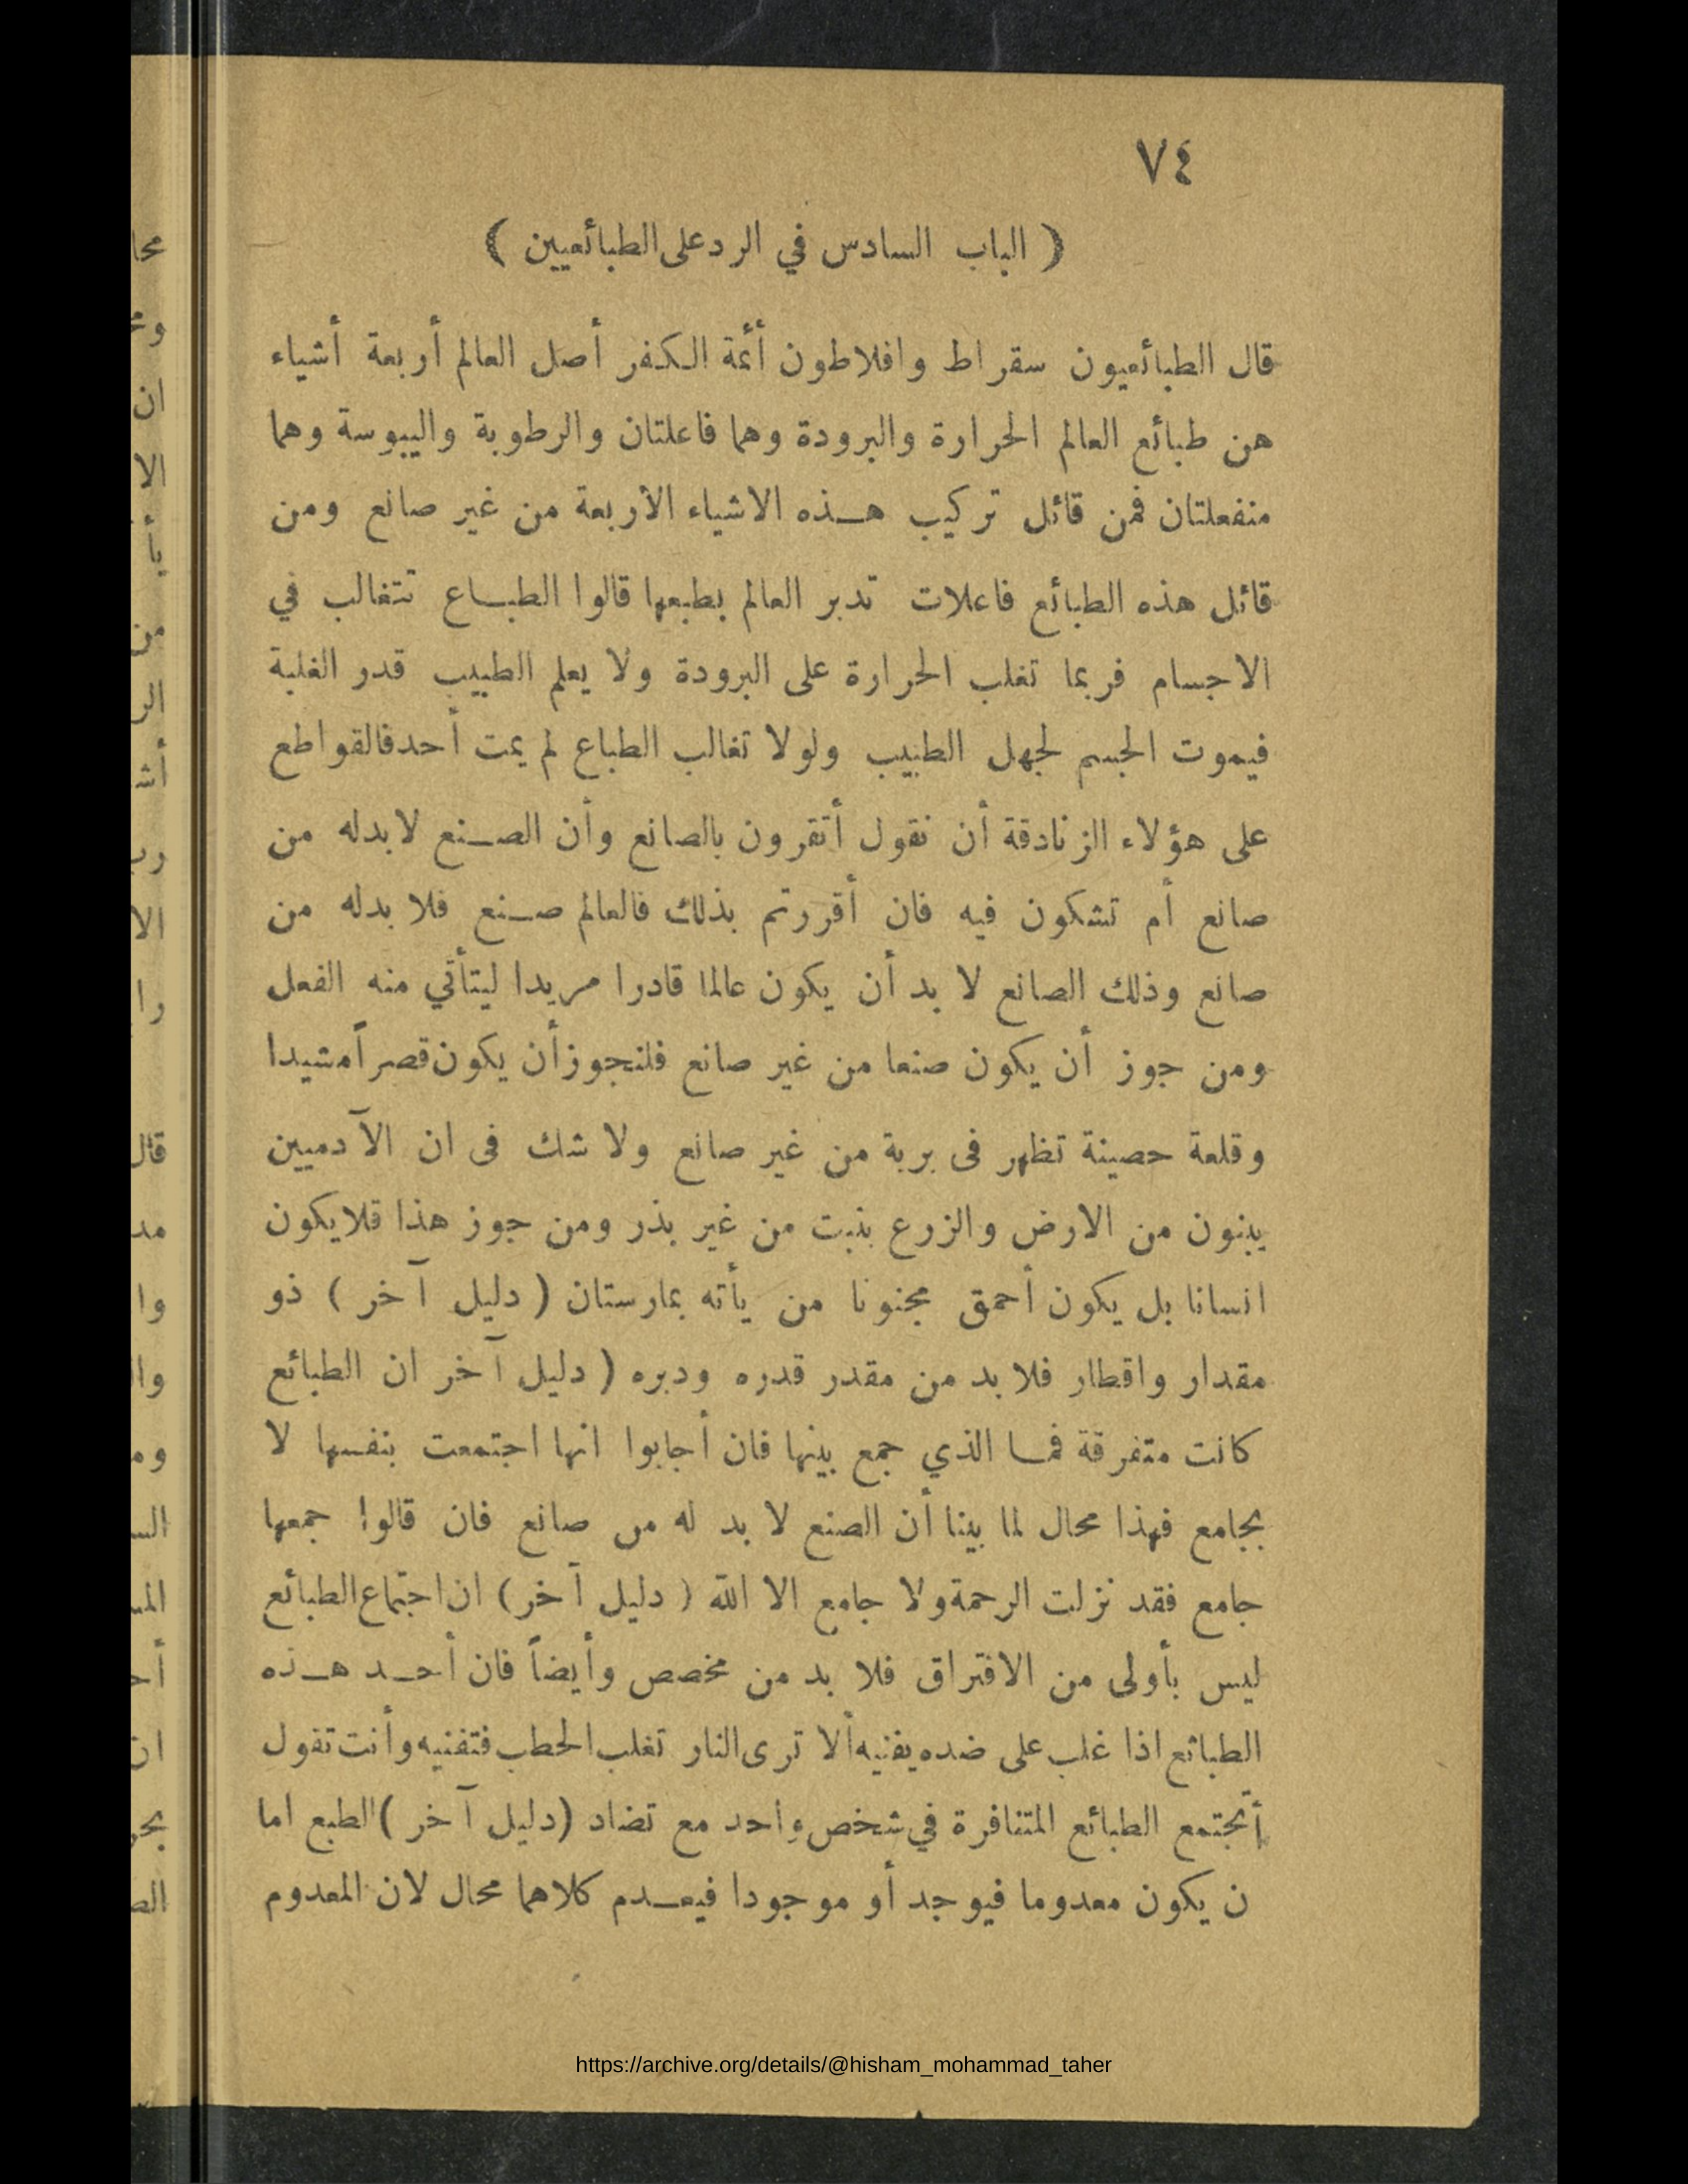 ٧٤
( الباب السادس في الرد على الطبائعيين )
قال الطبائعيون سقراط وافلاطون أئمة الكفر أصل العالم أربعة أشياء
هن طبائع العالم الحرارة والبرودة وهما فاعلتان والرطوبة واليبوسة وهما
منفعلتان فمن قائل تركيب هذه الاشياء الأربعة من غير صانع ومن
قائل هذه الطبائع فاعلات تدبر العالم بطبعها قالوا الطباع تتغالب في
الاجسام فربما تغلب الحرارة على البرودة ولا يعلم الطبيب قدر الغلبة
فيموت الجسم لجهل الطبيب ولولا تغالب الطباع لم يمت أحد فالقواطع
على هؤلاء الزنادقة أن نقول أتقرون بالصانع وأن الصنع لابدله من
صانع أم تشكون فيه فان أقررتم بذلك فالعالم صنع فلا بدله من
صانع وذلك الصانع لا بد أن يكون عالما قادرا مريدا ليتأتي منه الفعل
ومن جوز أن يكون صنعا من غير صانع فلنجوز أن يكون قصراً مشيدا
وقلعة حصينة تظهر فى برية من غير صانع ولا شك فى ان الآدميين
يبنون من الارض والزرع بنبت من غير بذر ومن جوز هذا فلا يكون
انسانا بل يكون أحمق مجنونا من يأته بمارستان ( دليل آخر ) ذو
مقدار واقطار فلا بد من مقدر قدره ودبره ( دليل آخر ان الطبائع
كانت متفرقة فما الذي جمع بينها فان أجابوا انها اجتمعت بنفسها لا
بجامع فهذا محال لما بينا أن الصنع لا بد له من صانع فان قالوا جمعها
جامع فقد نزلت الرحمة ولا جامع الا الله ( دليل آخر ) ان اجتماع الطبائع
ليس بأولى من الافتراق فلا بد من مخصص وأيضاً فان أحد هذه
الطبائع اذا غلب على ضده يفنيه ألا ترى النار تغلب الحطب فتفنيه وأنت تقول
أتجتمع الطبائع المتنافرة في شخص واحد مع تضاد ( دليل آخر ) الطبع اما
ن يكون معدوما فيوجد أو موجودا فيعدم كلاهما محال لان المعدوم
https://archive.org/details/@hisham_mohammad_taher